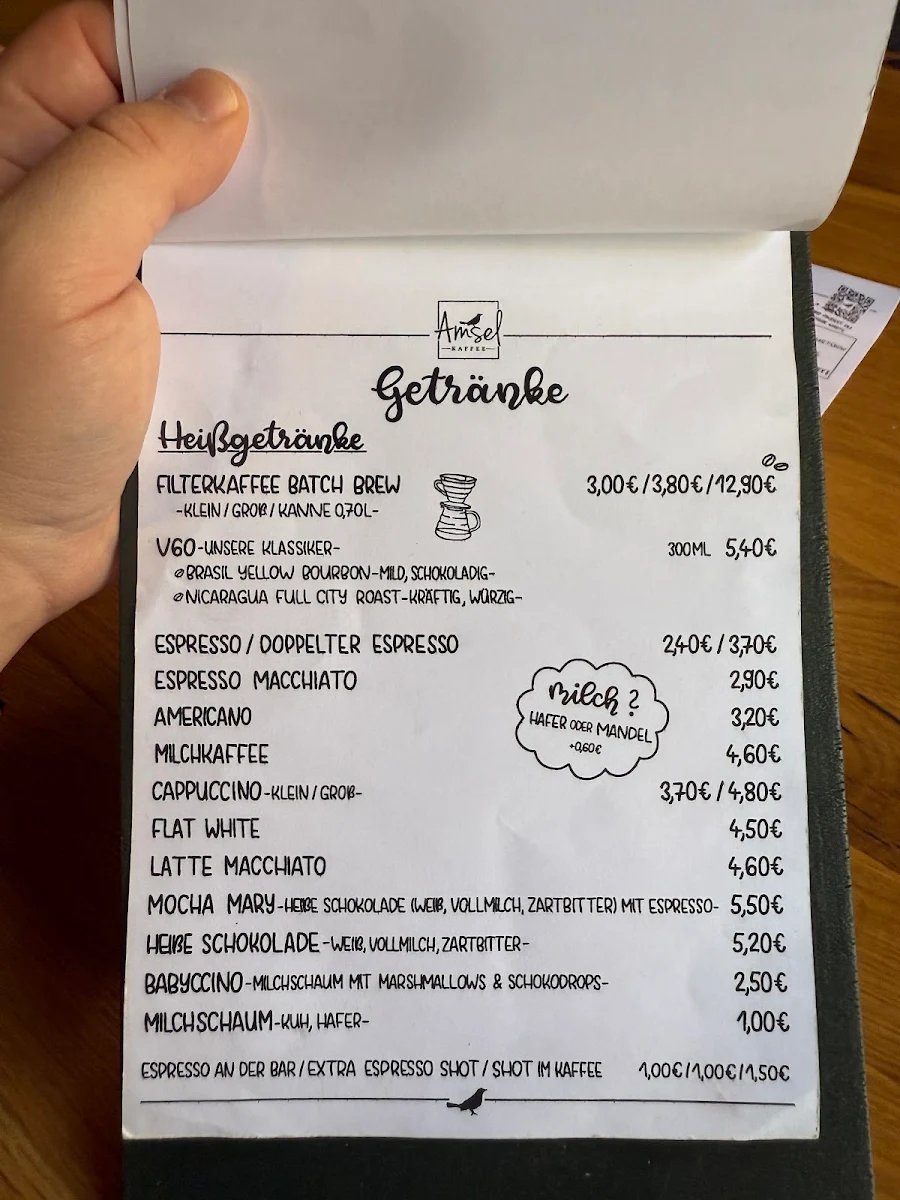 Amsel
KAFFEE
Getränke
Heißgetränke
FILTERKAFFEE BATCH BREW 3,00€/3,80€/12,90€
-KLEIN/GROß/KANNE 0,70L-
V60-UNSERE KLASSIKER- 300ML 5,40€
BRASIL YELLOW BOURBON-MILD, SCHOKOLADIG-
NICARAGUA FULL CITY ROAST-KRÄFTIG, WÜRZIG-
ESPRESSO / DOPPELTER ESPRESSO 2,40€ / 3,70€
ESPRESSO MACCHIATO 2,90€
Milch ?
HAFER ODER MANDEL
+0,60€
AMERICANO 3,20€
MILCHKAFFEE 4,60€
CAPPUCCINO-KLEIN/GROß- 3,70€ / 4,80€
FLAT WHITE 4,50€
LATTE MACCHIATO 4,60€
MOCHA MARY-HEIßE SCHOKOLADE (WEIß, VOLLMILCH, ZARTBITTER) MIT ESPRESSO- 5,50€
HEIßE SCHOKOLADE-WEIß, VOLLMILCH, ZARTBITTER- 5,20€
BABYCCINO-MILCHSCHAUM MIT MARSHMALLOWS & SCHOKODROPS- 2,50€
MILCHSCHAUM-KUH, HAFER- 1,00€
ESPRESSO AN DER BAR/EXTRA ESPRESSO SHOT/SHOT IM KAFFEE 1,00€/1,00€/1,50€